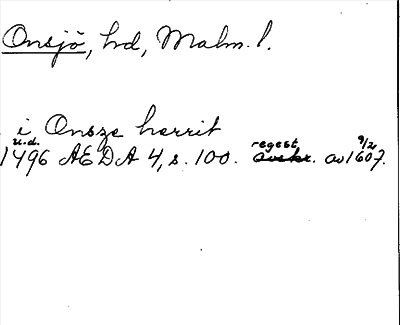 Onsjö, hd, Malm. l.
i Onsze herrit
u.d. regest, 9/2
1496 AEDA 4, s. 100. avskr. av 1607.